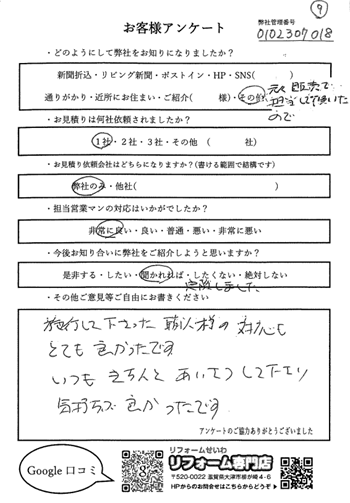 ⑨
お客様アンケート
弊社管理番号
0102307018
・どのようにして弊社をお知りになりましたか？
新聞折込・リビング新聞・ポストイン・HP・SNS( )
通りがかり・近所にお住まい・ご紹介( 様)・その他
元々販売で
担当して頂いた
ので
・お見積りは何社依頼されましたか？
1社・2社・3社・その他 ( 社)
・お見積り依頼会社はどちらになりますか？(書ける範囲で結構です)
弊社のみ・他社( )
・担当営業マンの対応はいかがでしたか？
非常に良い・良い・普通・悪い・非常に悪い
・今後お知り合いに弊社をご紹介しようと思いますか？
是非する・したい・聞かれれば・したくない・絶対しない
・その他ご意見等ご自由にお書きください
施行して下さった職人様の対応も
とても良かったです
いつもきちんとあいさつして下さり
気持ちが良かったです
アンケートのご協力ありがとうございました
Google 口コミ
リフォームせいわ
リフォーム専門店
〒520-0022 滋賀県大津市柳が崎4-6
HPからのお問合せはこちらからどうぞ